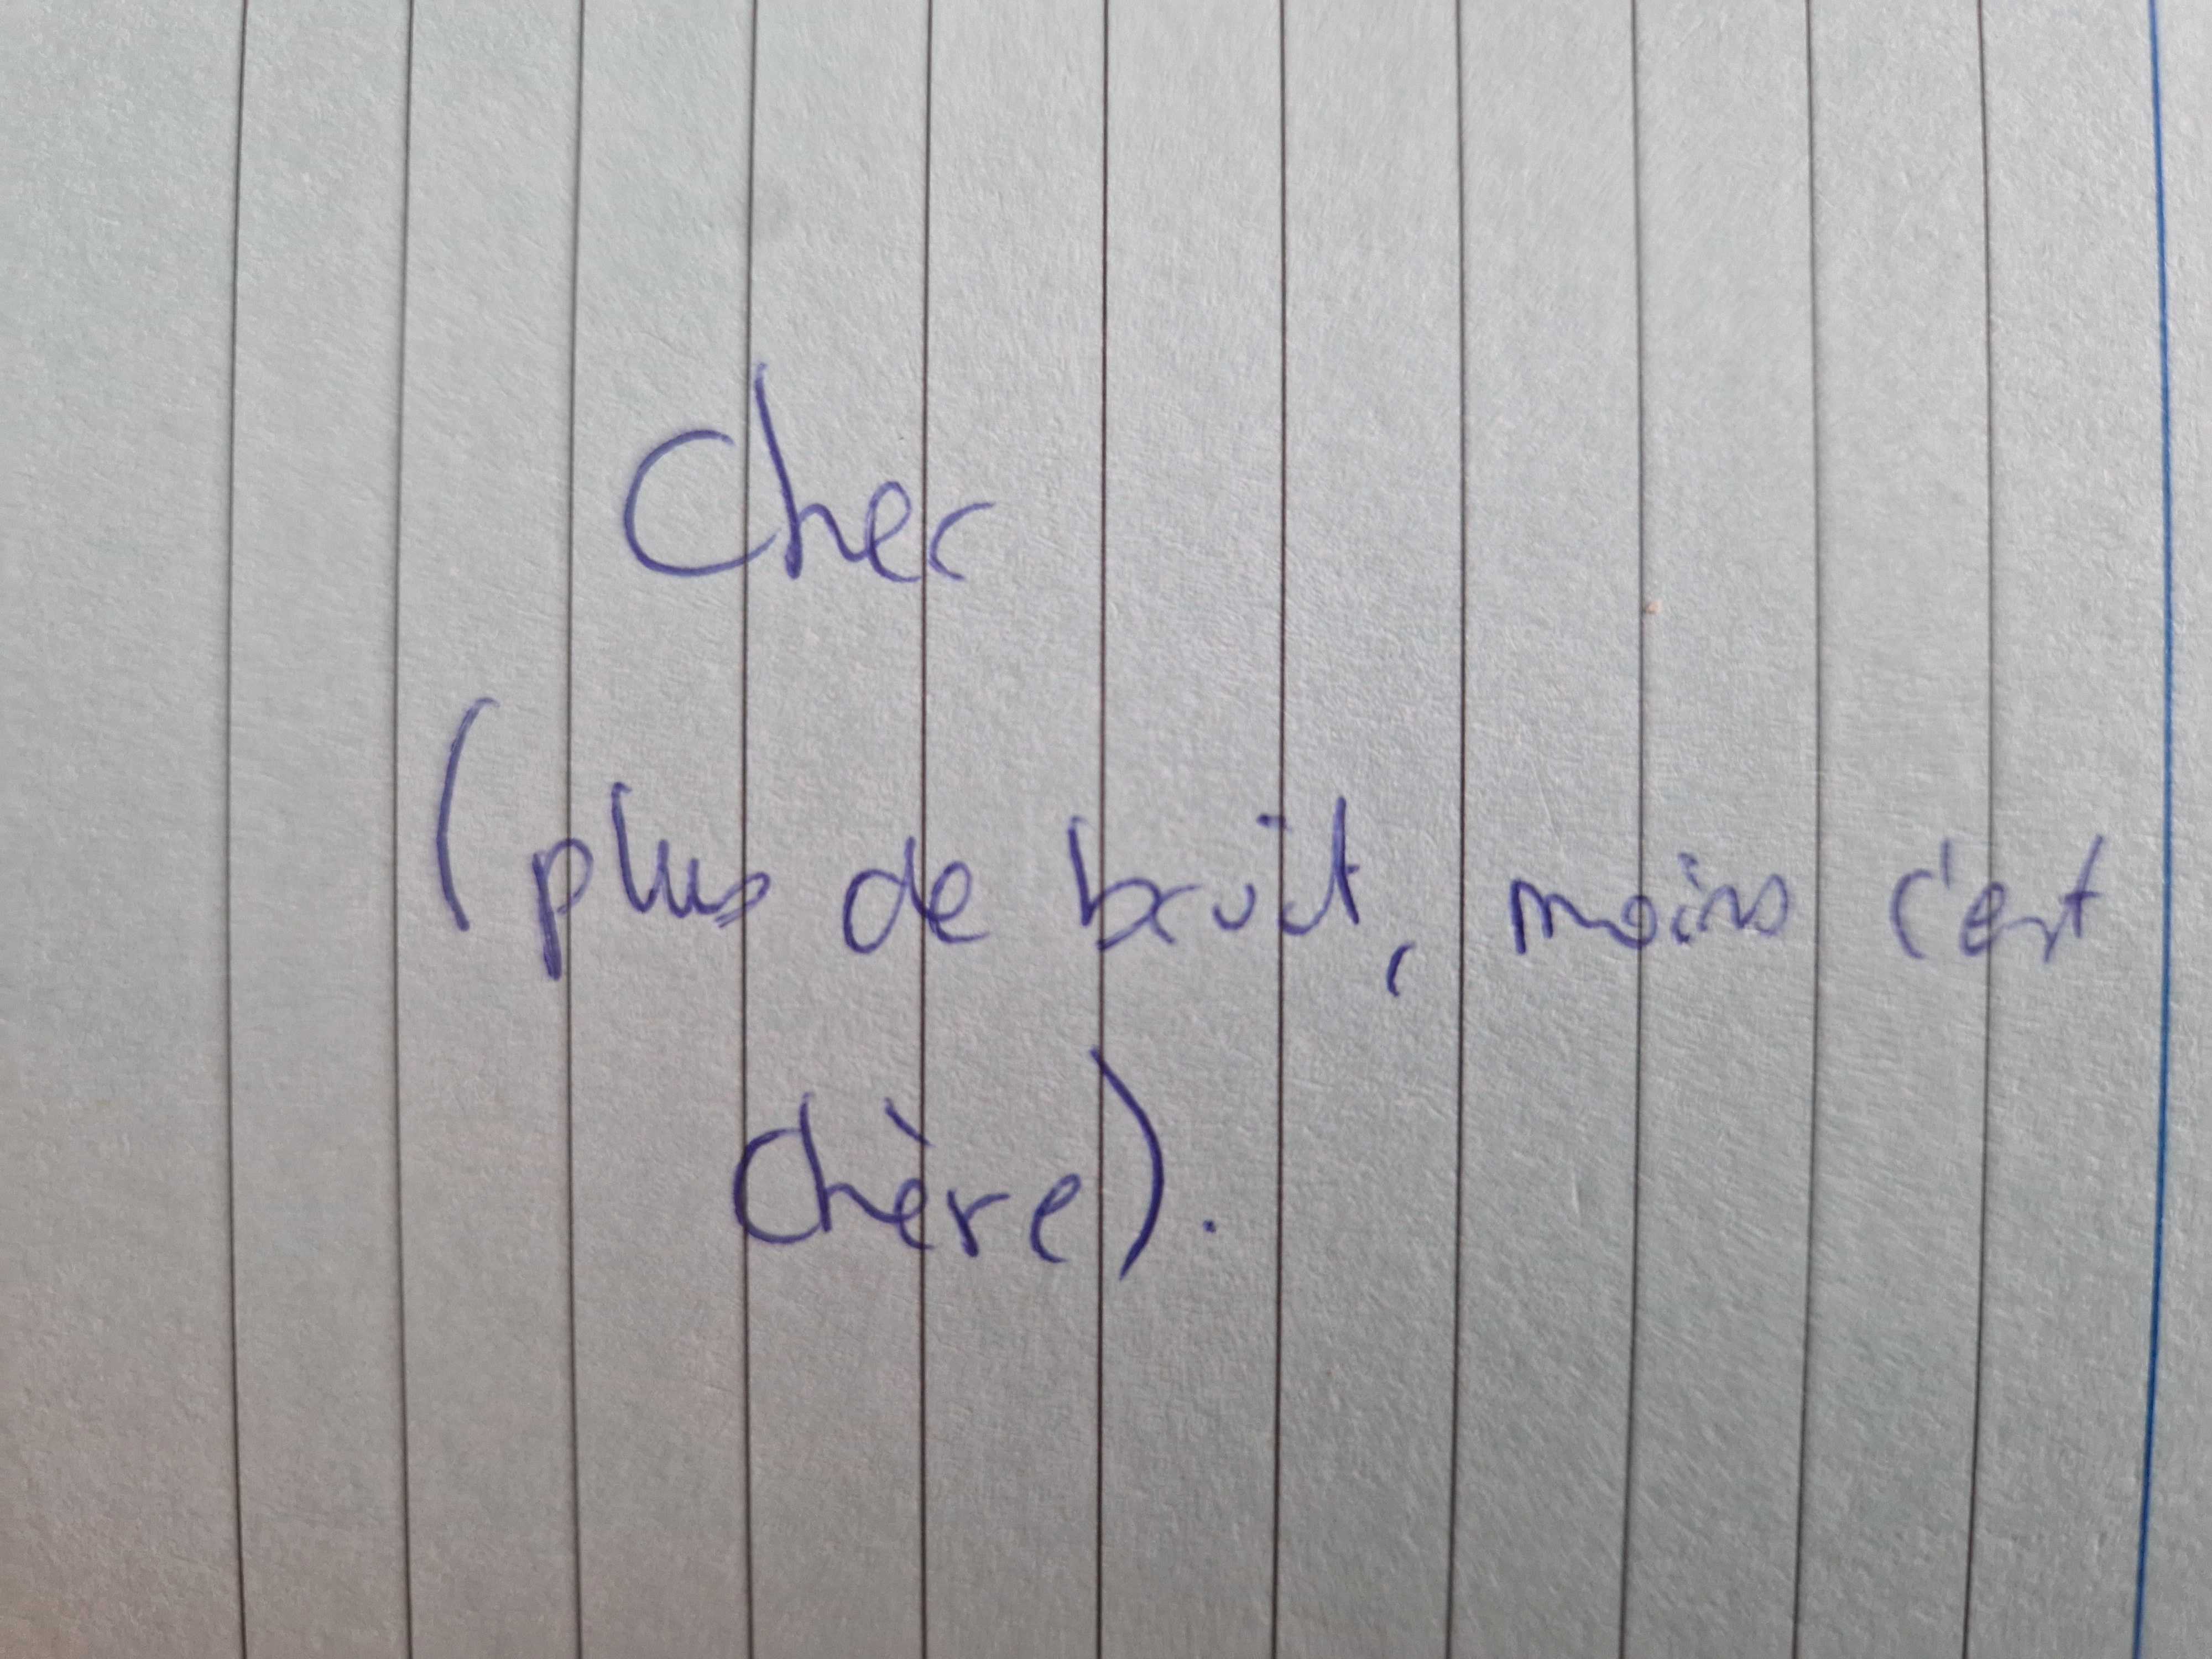 Cher
(plus de bruit, moins c'est
chère).